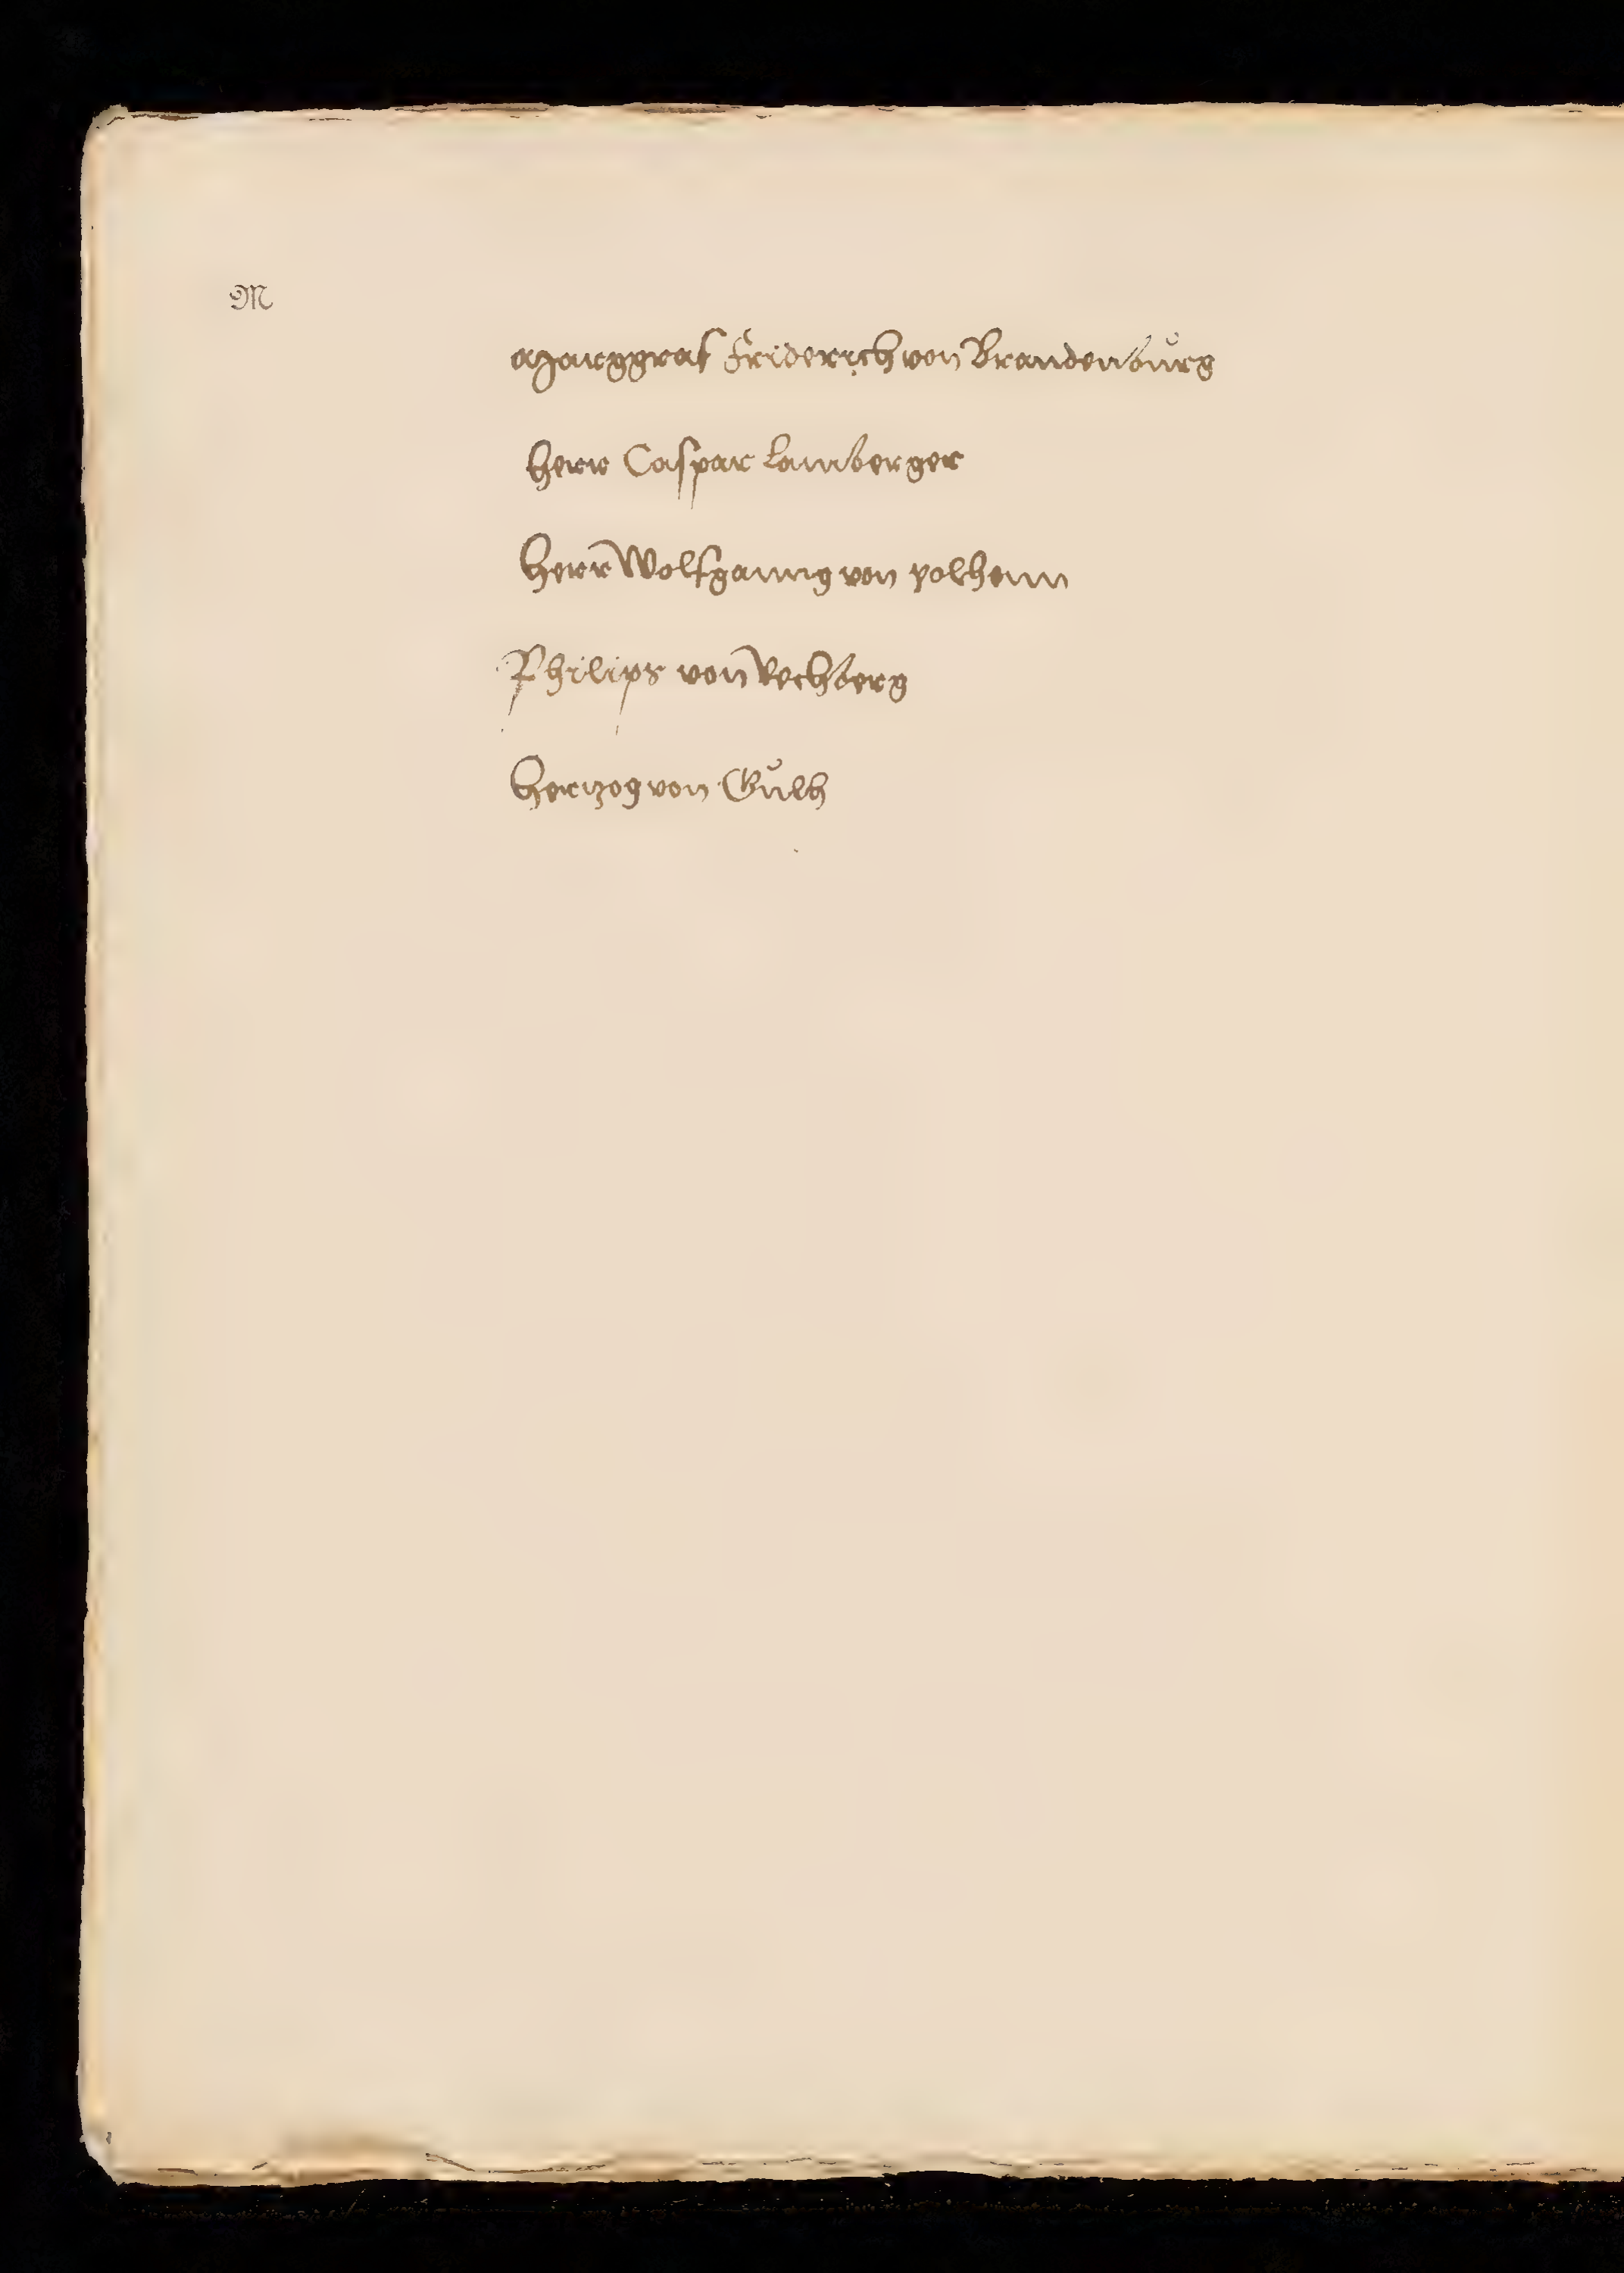 M
Marggraf Friderich von Brandenbůrg
herr Caspar Lamberger
Herr Wolfganng von polhenn
Philips von Rechberg
Hertzog von Gůlh